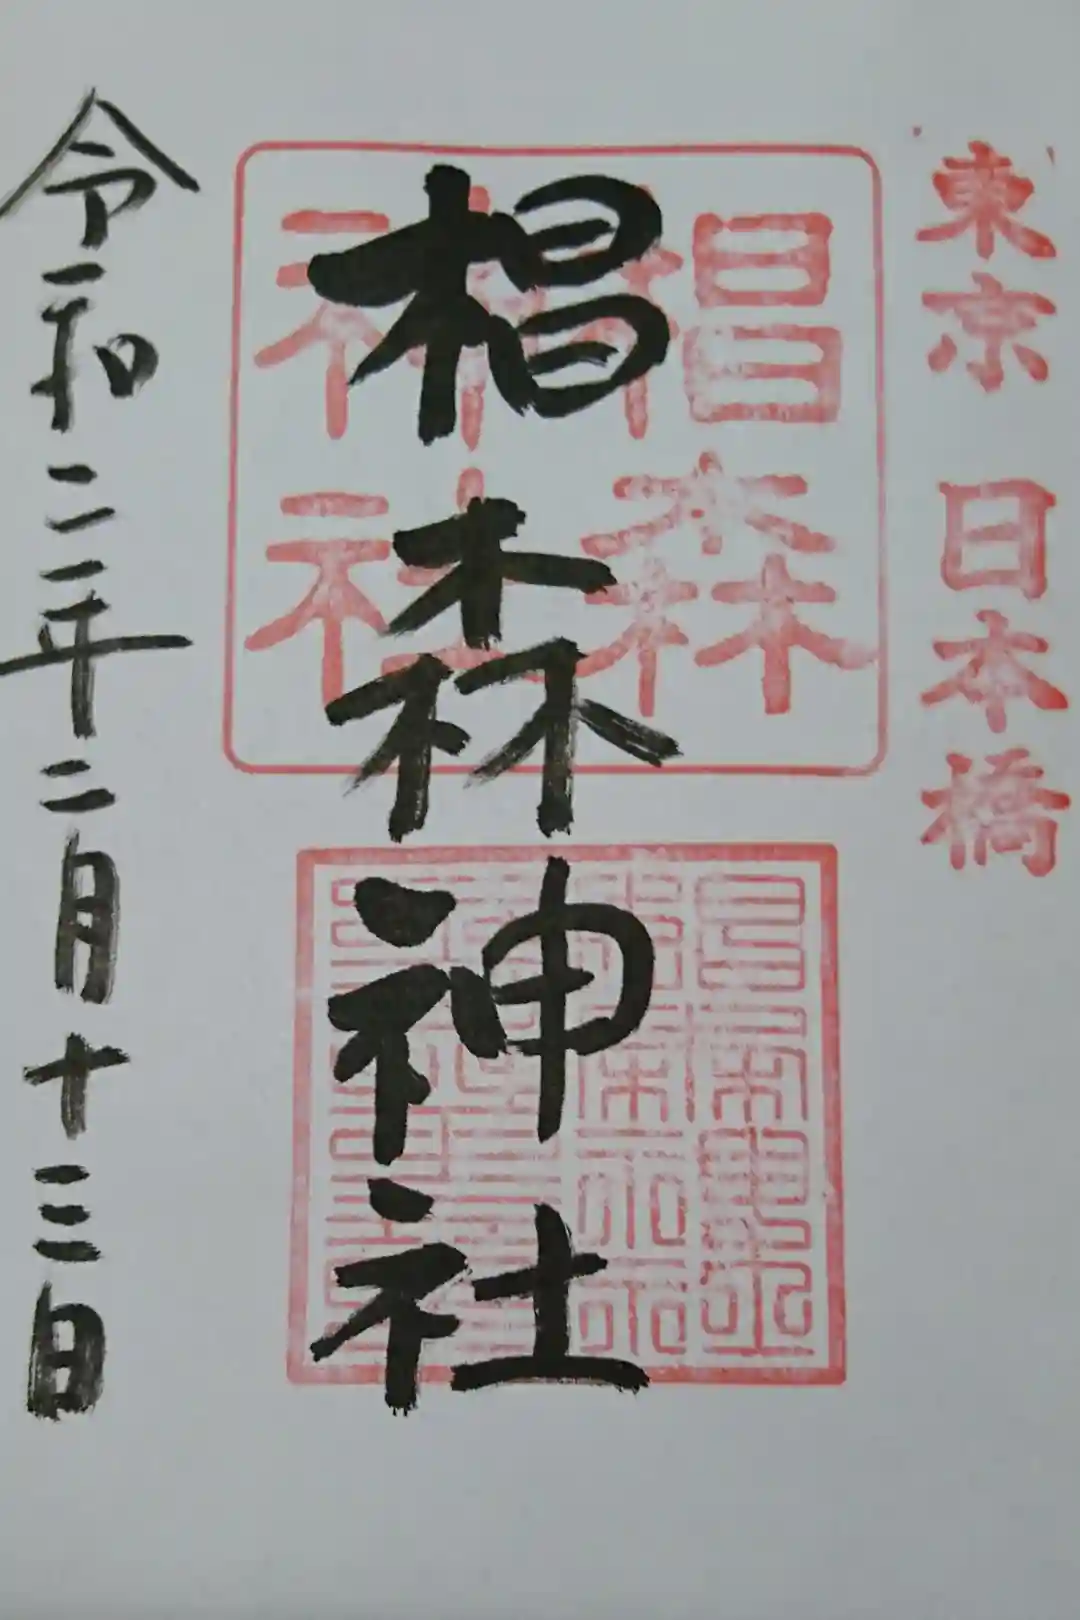 東京 日本橋
椙森神社
椙森神社
令和二年二月十三日